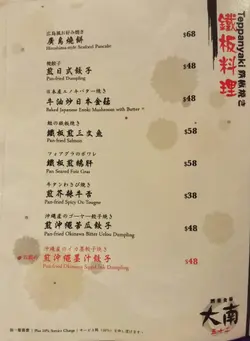 Teppanyaki 鉄板焼き
鐵板料理
広島風お好み焼き
廣島燒餅 $68
Hiroshima-style Seafood Pancake
焼餃子
煎日式餃子 $48
Pan-fried Dumpling
牛油炒日本金菇 $48
Baked Japanese Enoki Mushroom with Butter
鮭の鉄板焼き
鐵板煎三文魚 $58
Pan-fried Salmon
フォアグラのポワレ
鐵板煎鵝肝 $58
Pan Seared Foie Gras
牛タンわさび焼き
煎芥辣牛舌 $38
Pan-fried Spicy Ox Tongue
沖縄産のゴーヤー餃子焼き
煎沖繩苦瓜餃子 $48
Pan-fried Okinawa Bitter Melon Dumpling
沖縄産のイカ墨餃子焼き
煎沖繩墨汁餃子 $48
Pan-fried Okinawa Squid Ink Dumpling
大南
Plus 10% Service Charge